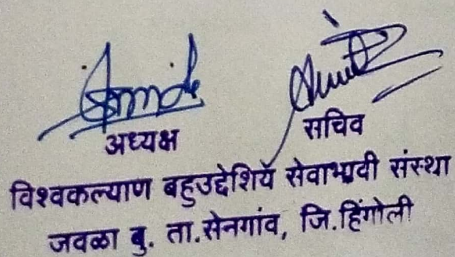 अध्यक्ष सचिव
विश्वकल्याण बहुउद्देशिय सेवाभावी संस्था
जवळा बु. ता.सेनगांव, जि.हिंगोली